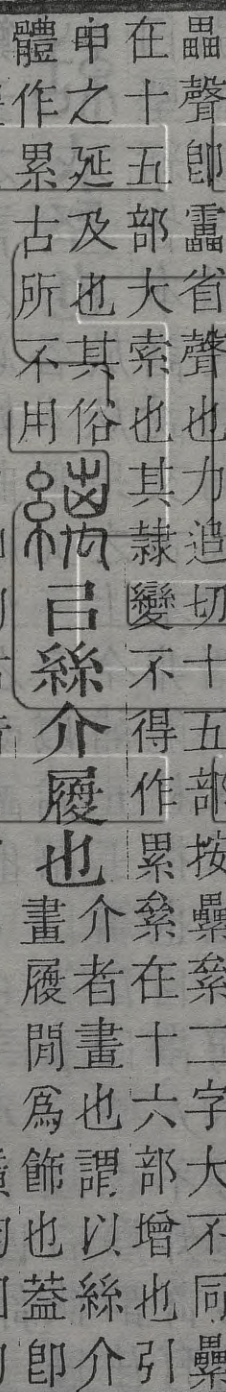 畾聲卽靁省聲也力追切十五部按纍絫二字大不同纍
在十五部大索也其隸變不得作累絫在十六部增也引
申之延及也其俗
體作累古所不用
縭㠯絲介履也
介者畫也謂以絲介
畫履閒爲飾也葢卽